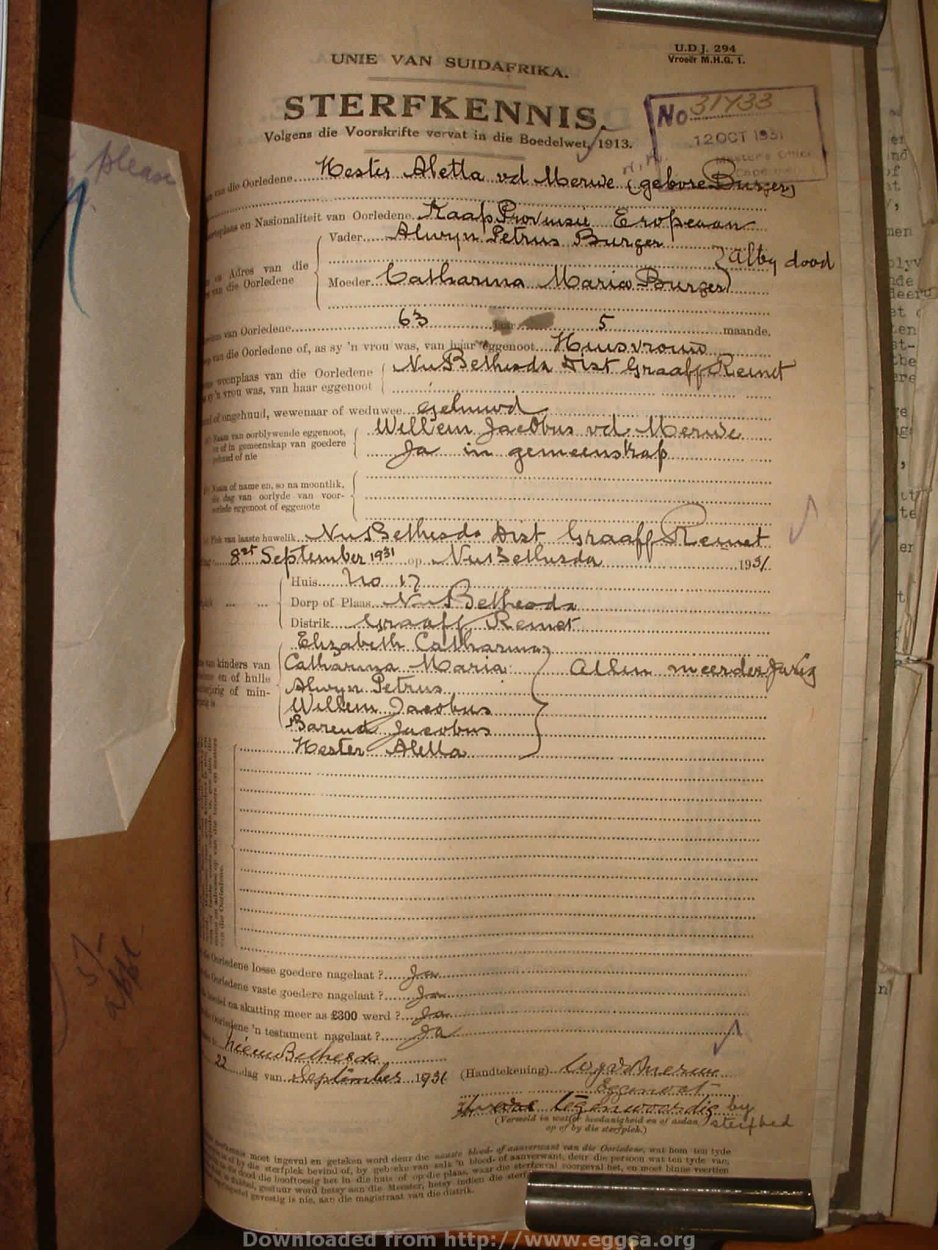 U.D.J. 294
Vroeër M.H.G. 1.
UNIE VAN SUIDAFRIKA.
STERFKENNIS.
Volgens die Voorskrifte vervat in die Boedelwet, 1913.
No 31433
12 OCT 1931
Master's Office
please
van die Oorledene Hester Aletta vd Merwe (gebore Burger)
en Nasionaliteit van Oorledene. Kaap Provinsie Eropeaan
Vader Alwyn Petrus Burger
Adres van die
van die Oorledene
Alby dood
Moeder Catharina Maria Burger
van Oorledene 63 Jaar 5 maande.
van die Oorledene of, as sy 'n vrou was, van haar eggenoot Huisvrouw
woonplaas van die Oorledene
sy 'n vrou was, van haar eggenoot
Nu Bethesda Dist Graaff Reinet
of ongehuud, wewenaar of weduwee gehuwd
Naam van oorblywende eggenoot,
of in gemeenskap van goedere
gehuud of nie
Willem Jacobus vd Merwe
Ja in gemeenskap
Naam of name en, so na moontlik,
die dag van oorlyde van voor-
eggenoot of eggenote
Plek van laaste huwelik Nu Bethesda Dist Graaff Reinet
8st September 1931 op Nu Bethesda 1931
Huis No 17
Dorp of Plaas Nu Bethesda
Distrik Graaff Reinet
Elizabeth Catharina
van kinders van
en of hulle
of min-
Catharina Maria Allen meerderjarig
Alwyn Petrus
Willem Jacobus
Barend Jacobus
Hester Aletta
Oorledene losse goedere nagelaat? Ja
Oorledene vaste goedere nagelaat? Ja
na skatting meer as £300 werd? Ja
Oorledene 'n testament nagelaat? Ja
Nieuw Bethesda
22 dag van September 1931 (Handtekening)
Eggenoot
tegenwoordig by
sterfbed
(Vermeld in watter hoedanigheid en of aldan
op of by die sterfplek.)
moet ingevul en geteken word deur die naaste bloed- of aanverwant van die Oorledene, wat hom ten tyde
by die sterfplek bevind of, by gebreke van sulk 'n bloed- of aanverwant, deur die persoon wat ten tyde van
die dood die hooftoesig het in die huis of op die plaas, waar die sterfgeval voorgeval het, en moet binne veertien
gestuur word hetsy aan die Meester, hetsy indien die
gevestig is nie, aan die magistraat van die distrik.
Downloaded from http://www.eggsa.org